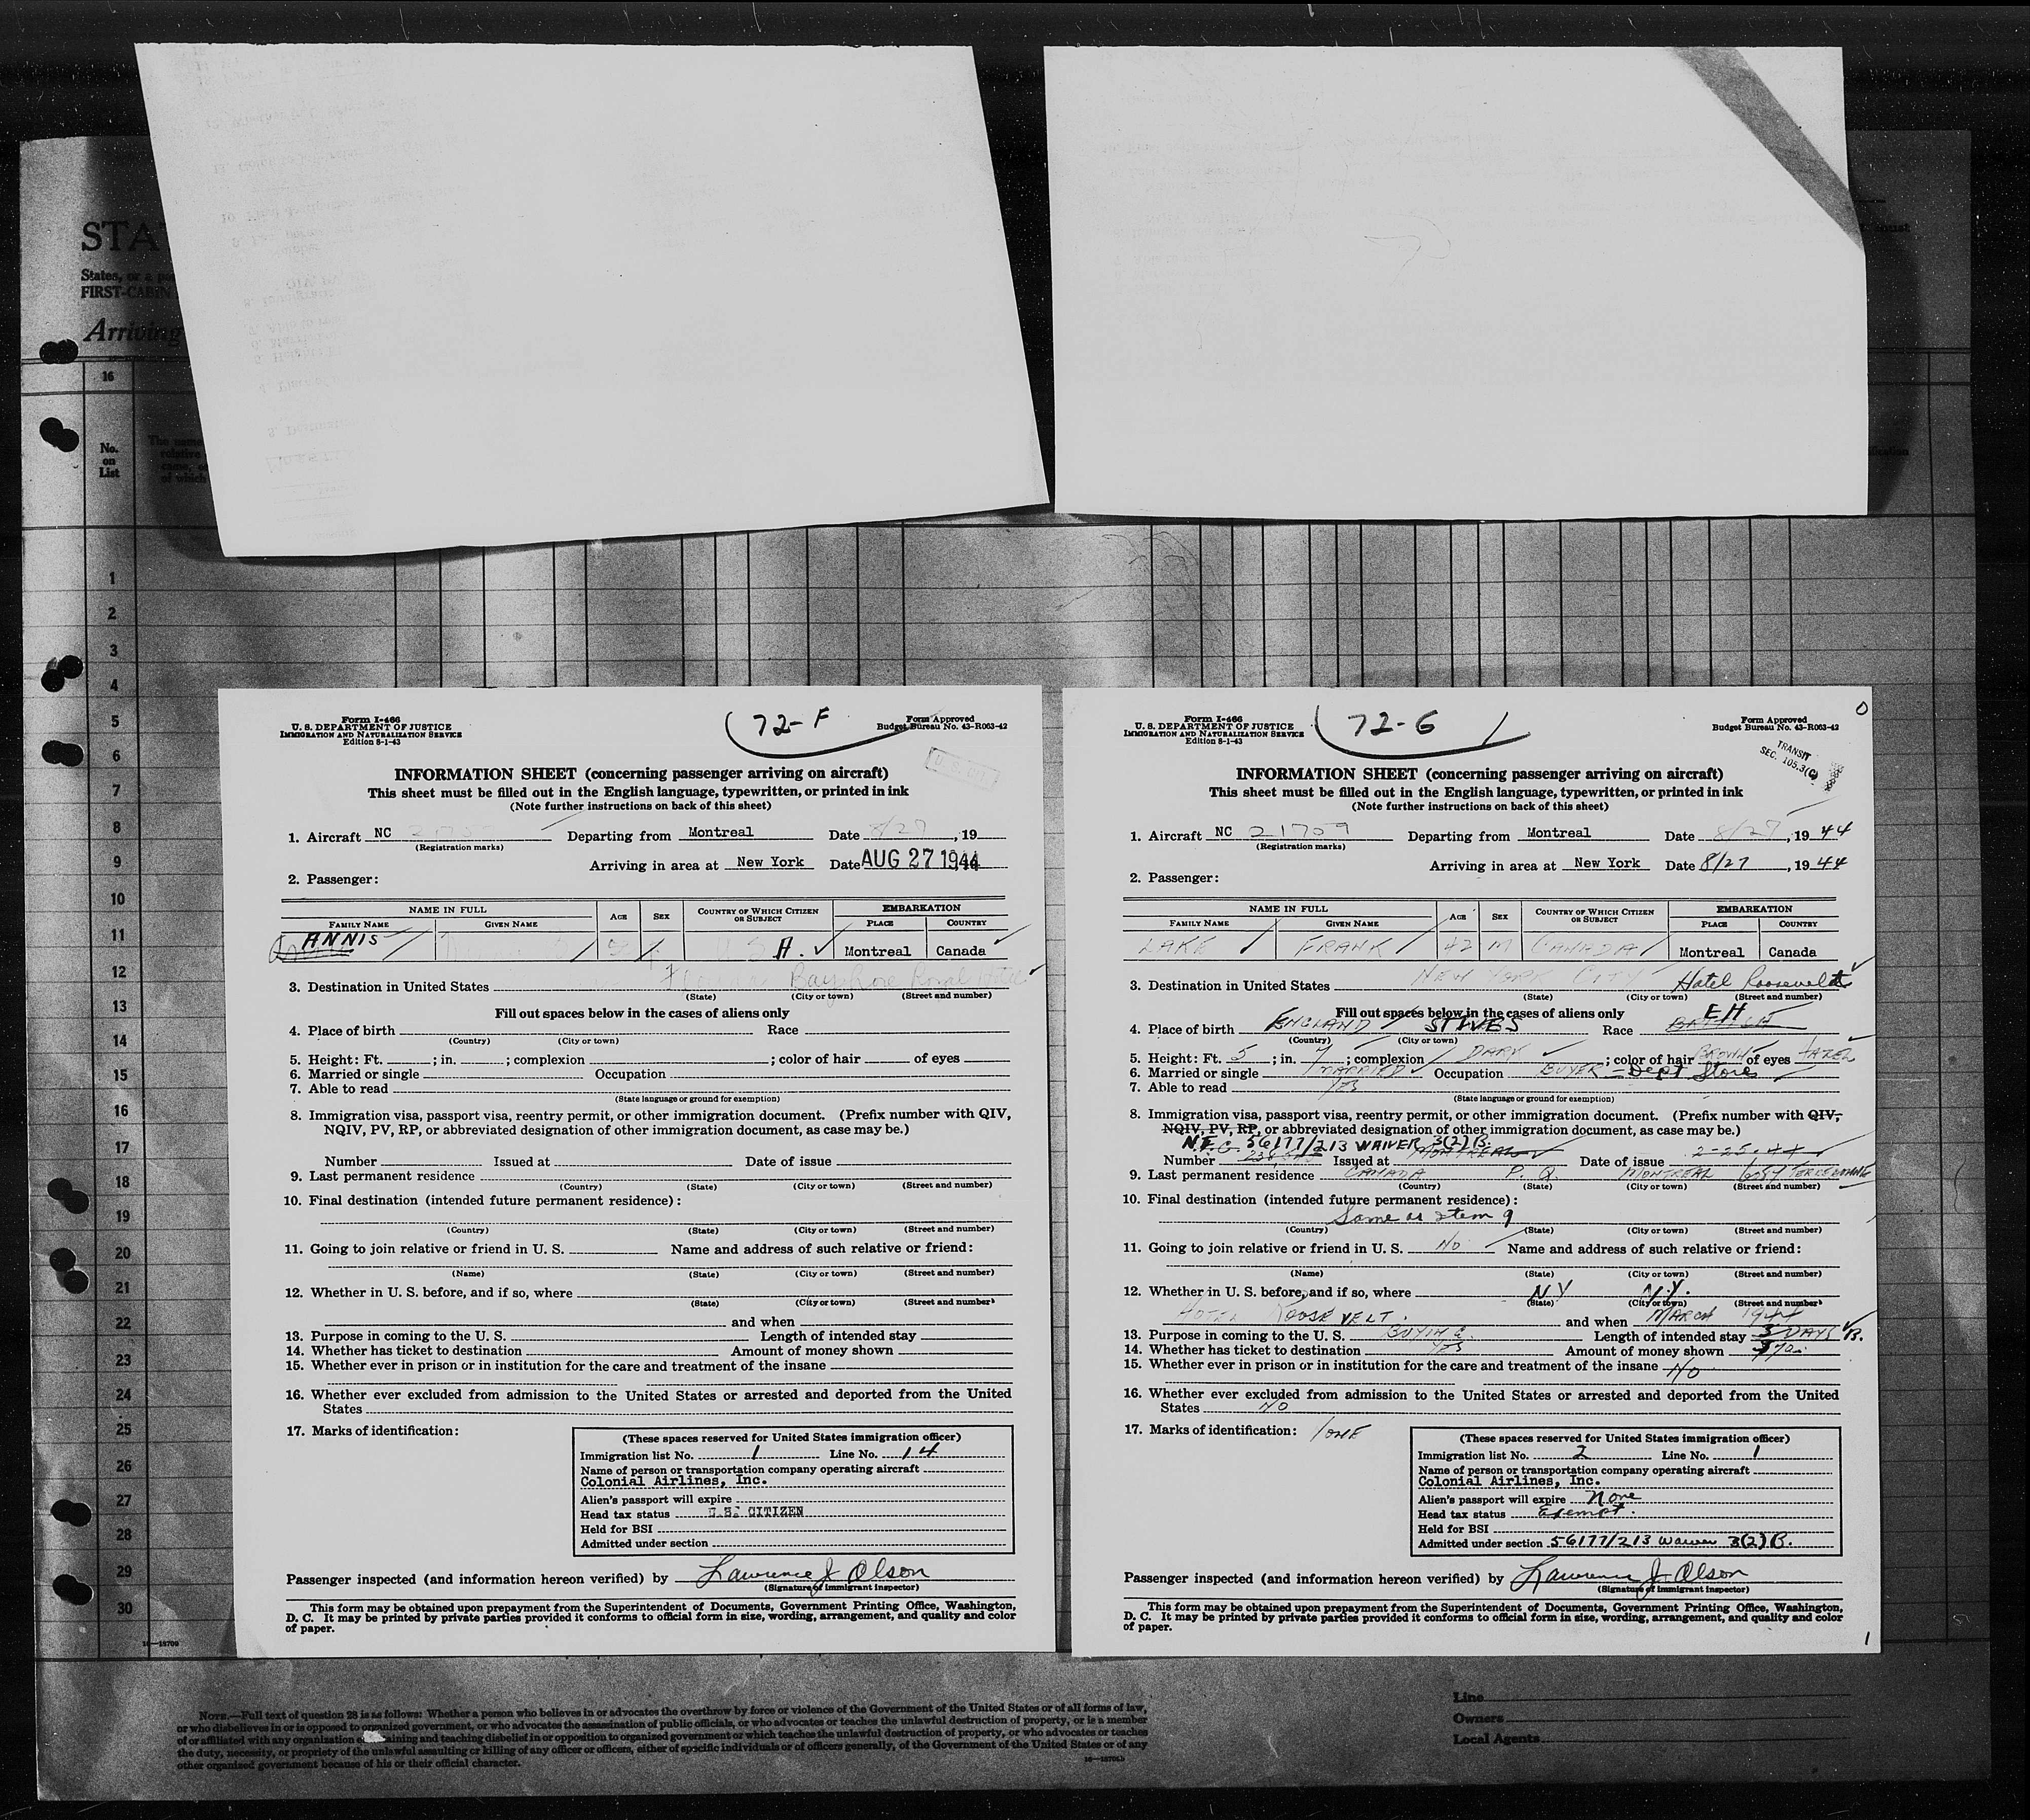 STA
States, or a
FIRST-CABIN
Arriving
16
No.
on
List
The name
relative
came, o
of which
1
2
3
4
5
6
7
8
9
10
11
12
13
14
15
16
17
18
19
20
21
22
23
24
25
26
27
28
29
30
Form I-466
U. S. DEPARTMENT OF JUSTICE
IMMIGRATION AND NATURALIZATION SERVICE
Edition 8-1-43
72-F
Form Approved
Budget Bureau No. 43-R063-42
INFORMATION SHEET (concerning passenger arriving on aircraft)
This sheet must be filled out in the English language, typewritten, or printed in ink
(Note further instructions on back of this sheet)
1. Aircraft NC Departing from Montreal Date 8/27, 19
(Registration marks)
Arriving in area at New York Date AUG 27 1944
2. Passenger:
NAME IN FULL AGE SEX COUNTRY OF WHICH CITIZEN OR SUBJECT EMBARKATION
FAMILY NAME GIVEN NAME PLACE COUNTRY
ANNIS U S A. Montreal Canada
3. Destination in United States
(State) (City or town) (Street and number)
Fill out spaces below in the cases of aliens only
4. Place of birth Race
(Country) (City or town)
5. Height: Ft. ; in. ; complexion ; color of hair of eyes
6. Married or single Occupation
7. Able to read
(State language or ground for exemption)
8. Immigration visa, passport visa, reentry permit, or other immigration document. (Prefix number with QIV,
NQIV, PV, RP, or abbreviated designation of other immigration document, as case may be.)
Number Issued at Date of issue
9. Last permanent residence
(Country) (State) (City or town) (Street and number)
10. Final destination (intended future permanent residence):
(Country) (State) (City or town) (Street and number)
11. Going to join relative or friend in U. S. Name and address of such relative or friend:
(Name) (State) (City or town) (Street and number)
12. Whether in U. S. before, and if so, where
(State) (City or town) (Street and number)
and when
13. Purpose in coming to the U. S. Length of intended stay
14. Whether has ticket to destination Amount of money shown
15. Whether ever in prison or in institution for the care and treatment of the insane
16. Whether ever excluded from admission to the United States or arrested and deported from the United
States
17. Marks of identification:
(These spaces reserved for United States immigration officer)
Immigration list No. 1 Line No. 14
Name of person or transportation company operating aircraft
Colonial Airlines, Inc.
Alien's passport will expire
Head tax status U.S. CITIZEN
Held for BSI
Admitted under section
Passenger inspected (and information hereon verified) by Lawrence J Olson
(Signature of immigrant inspector)
This form may be obtained upon prepayment from the Superintendent of Documents, Government Printing Office, Washington,
D. C. It may be printed by private parties provided it conforms to official form in size, wording, arrangement, and quality and color
of paper.
Form I-466
U. S. DEPARTMENT OF JUSTICE
IMMIGRATION AND NATURALIZATION SERVICE
Edition 8-1-43
72-G
Form Approved
Budget Bureau No. 43-R063-42
TRANSIT
SEC. 105.3(C)
INFORMATION SHEET (concerning passenger arriving on aircraft)
This sheet must be filled out in the English language, typewritten, or printed in ink
(Note further instructions on back of this sheet)
1. Aircraft NC 21709 Departing from Montreal Date 8/27, 1944
(Registration marks)
Arriving in area at New York Date 8/27, 1944
2. Passenger:
NAME IN FULL AGE SEX COUNTRY OF WHICH CITIZEN OR SUBJECT EMBARKATION
FAMILY NAME GIVEN NAME PLACE COUNTRY
LAKE FRANK 42 M CANADA Montreal Canada
3. Destination in United States NEW YORK CITY Hotel Roosevelt
(State) (City or town) (Street and number)
Fill out spaces below in the cases of aliens only
4. Place of birth ENGLAND ST IVES Race EH
(Country) (City or town)
5. Height: Ft. 5; in. 7; complexion DARK; color of hair BROWN of eyes HAZEL
6. Married or single MARRIED Occupation BUYER - Dept Store
7. Able to read YES
(State language or ground for exemption)
8. Immigration visa, passport visa, reentry permit, or other immigration document. (Prefix number with QIV,
NQIV, PV, RP, or abbreviated designation of other immigration document, as case may be.)
56177/213 WAIVER 3(2)B.
Number Issued at MONTREAL Date of issue 2-25-44
9. Last permanent residence CANADA P. Q. MONTREAL
(Country) (State) (City or town) (Street and number)
10. Final destination (intended future permanent residence):
Same as Item 9
(Country) (State) (City or town) (Street and number)
11. Going to join relative or friend in U. S. NO Name and address of such relative or friend:
(Name) (State) (City or town) (Street and number)
12. Whether in U. S. before, and if so, where NY N.Y.
(State) (City or town) (Street and number)
HOTEL ROOSEVELT. and when MARCH 1944
13. Purpose in coming to the U. S. BUYING Length of intended stay 3 DAYS B.
14. Whether has ticket to destination YES Amount of money shown $70.
15. Whether ever in prison or in institution for the care and treatment of the insane NO
16. Whether ever excluded from admission to the United States or arrested and deported from the United
States NO
17. Marks of identification:
(These spaces reserved for United States immigration officer)
Immigration list No. 2 Line No. 1
Name of person or transportation company operating aircraft
Colonial Airlines, Inc.
Alien's passport will expire None
Head tax status Exempt.
Held for BSI
Admitted under section 56177/213 Waiver 3(2)B.
Passenger inspected (and information hereon verified) by Lawrence J Olson
(Signature of immigrant inspector)
This form may be obtained upon prepayment from the Superintendent of Documents, Government Printing Office, Washington,
D. C. It may be printed by private parties provided it conforms to official form in size, wording, arrangement, and quality and color
of paper.
1
NOTE.—Full text of question 28 is as follows: Whether a person who believes in or advocates the overthrow by force or violence of the Government of the United States or of all forms of law,
or who disbelieves in or is opposed to organized government, or who advocates the assassination of public officials, or who advocates or teaches the unlawful destruction of property, or is a member
of or affiliated with any organization e aining and teaching disbelief in or opposition to organized government or which teaches the unlawful destruction of property, or who advocates or teaches
the duty, necessity, or propriety of the unlawful assaulting or killing of any officer or officers, either of specific individuals or of officers generally, of the Government of the United States or of any
other organized government because of his or their official character.
Line
Owners
Local Agents